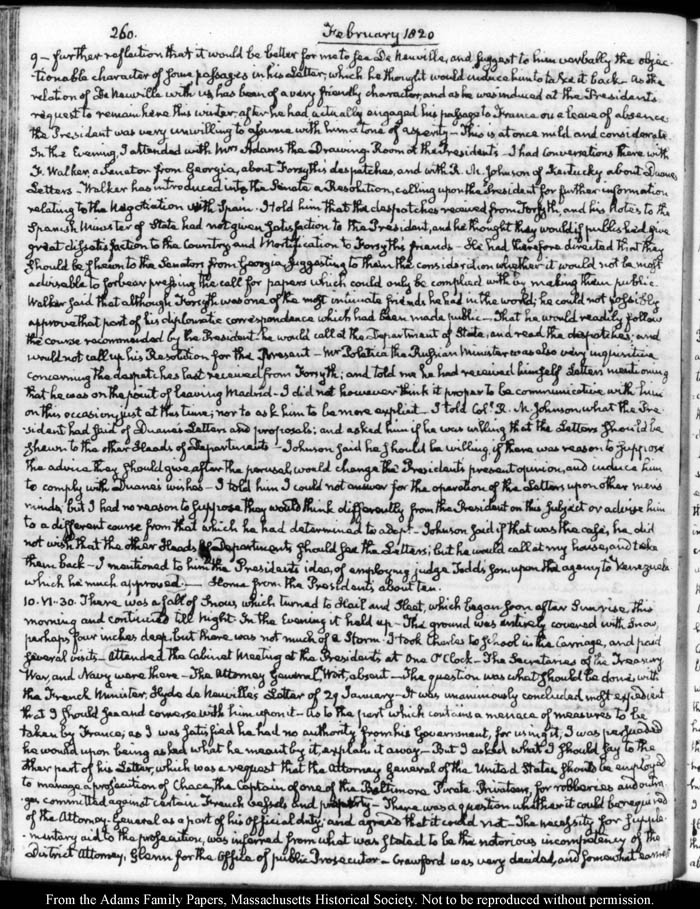 260. February 1820
9 – further reflection that it would be better for me to see De Neuville, and suggest to him verbally the objec-
-tionable character of some passages in his Letter, which he thought would induce him to take it back – As the
relation of De Neuville with us has been of a very friendly character, and as he was induced at the President's
request to remain here this winter, after he had actually engaged his passage to France on a leave of absence
the President was very unwilling to assume with him a tone of asperity – This is at once mild and considerate
In the Evening I attended with Mrs Adams the Drawing Room at the President's – I had conversations there with
F. Walker, a Senator from Georgia, about Forsyth's despatches, and with R. M. Johnson of Kentucky about Duane's
Letters – Walker has introduced into the Senate a Resolution, calling upon the President for further information
relating to the Negotiation with Spain – I told him that the despatches received from Forsyth, and his Notes to the
Spanish Minister of State had not given satisfaction to the President, and he thought they would if published give
great dissatisfaction to the Country, and Mortification to Forsyth's friends – He had therefore directed that they
should be shewn to the Senators from Georgia, suggesting to them the consideration whether it would not be most
advisable to forbear pressing the call for papers which could only be complied with by making them public.
Walker said that although Forsyth was one of the most intimate friends he had in the world, he could not possibly
approve that part of his diplomatic correspondence which had been made public – That he would readily follow
the course recommended by the President – he would call at the Department of State, and read the despatches, and
would not call up his Resolution for the Present – Mr Poletica the Russian Minister was also very inquisitive
concerning the despatches last received from Forsyth; and told me he had received himself Letters mentioning
that he was on the point of leaving Madrid – I did not however think it proper to be communicative with him
on this occasion, just at this time; nor to ask him to be more explicit – I told Coll. R. M. Johnson, what the Pre-
-sident had said of Duane's Letters and proposals; and asked him if he was willing that the Letters should be
shewn to the other Heads of Departments – Johnson said he should be willing, if there was reason to suppose
the advice they should give, after the perusal, would change the President's present opinion, and induce him
to comply with Duane's wishes – I told him I could not answer for the operation of the Letters upon other men's
minds, but I had no reason to suppose they would think differently from the President on this subject or advise him
to a different course from that which he had determined to adopt – Johnson said if that was the case, he did
not wish that the other Heads of Departments should see the Letters; but he would call at my house, and take
them back – I mentioned to him the President's idea, of employing judge Todd's son, upon the agency to Venezuela
which he much approved. – Home from the President's about ten.
10. VI. 30. There was a fall of Snow, which turned to Hail and Sleet, which began soon after Sunrise, this
morning and continued till Night. In the Evening it held up – The ground was entirely covered with Snow,
perhaps four inches deep, but there was not much of a Storm – I took Charles to School in the Carriage, and paid
several visits – Attended the Cabinet Meeting at the President's at One O'Clock – The Secretaries of the Treasury
War, and Navy were there – The Attorney General, Wirt, absent – The question was what should be done, with
the French Minister, Hyde de Neuville's Letter of 29 January – It was unanimously concluded most expedient
that I should see and converse with him upon it – As to the part which contains a menace of measures to be
taken by France; as I was satisfied he had no authority from his Government, for using it, I was persuaded
he would upon being asked what he meant by it, explain it away – But I asked what I should say to the
other part of his Letter, which was a request that the Attorney General of the United States should be employed
to manage a prosecution of Chace, the Captain of one of the Baltimore Pirate-Privateers, for robberies and outra-
-ges committed against certain French vessels and property – There was a question whether it could be required
of the Attorney General as a part of his official duty, and agreed that it could not – The necessity for supple-
-mentary aid to the prosecution, was inferred from what was stated to be the notorious incompetency of the
District Attorney, Glenn for the Office of public Prosecutor – Crawford was very decided, and somewhat earnest
From the Adams Family Papers, Massachusetts Historical Society. Not to be reproduced without permission.